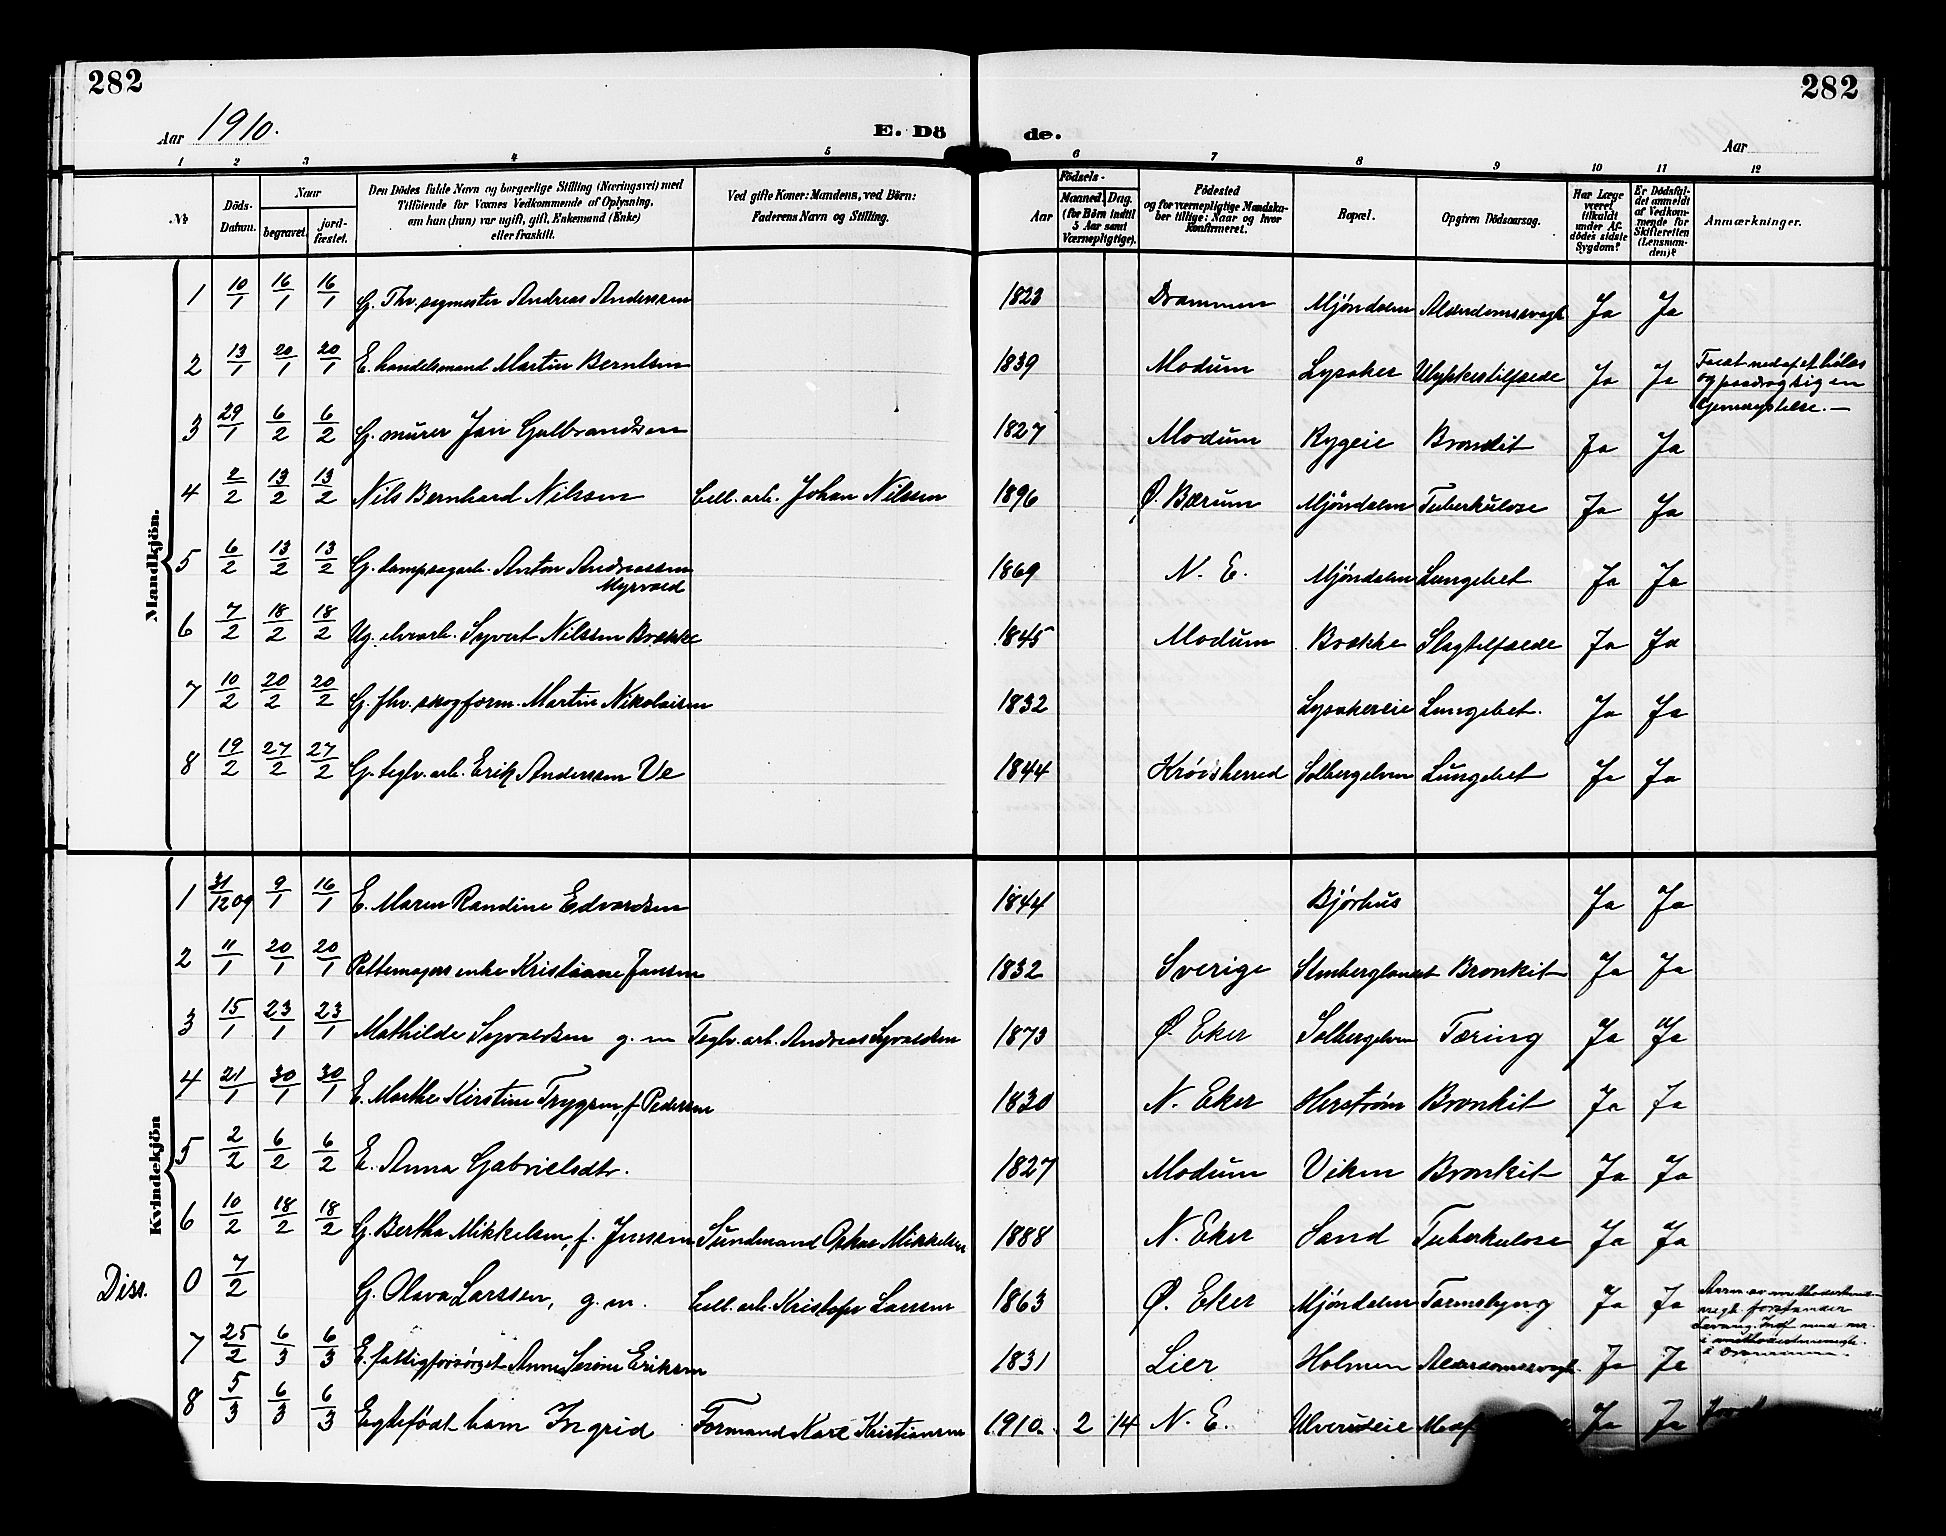 282
282
Aar 1910.
E. Dö
de.
Aar
1 2 3 4 5 6 7 8 9 10 11 12
№
Döds-Datum.
Naar
begravet.
jord-fæstet.
Den Dödes fulde Navn og borgerlige Stilling (Næringsvei) med
Tilföiende for Voxnes Vedkommende af Oplysning,
om han (hun) var ugift, gift, Enkemand (Enke)
eller fraskilt.
Ved gifte Koner: Mandens, ved Börn:
Faderens Navn og Stilling.
Födsels-
Aar
Maaned. Dag.
(for Börn indtil
5 Aar samt
Værnepligtige).
Födested
og for værnepligtige Mandska-
ber tillige: Naar og hvor
konfirmeret.
Bopæl.
Opgiven Dödsaarsag.
Har Læge
været
tilkaldt
under Af-
dödes sidste
Sygdom?
Er Dödsfal-
det anmeldt
af Vedkom-
mende for
Skifteretten
(Lensman-
den)?
Anmærkninger.
Mandkjön.
1 10/1 16/1 16/1 G. Fhv. sagmester Andreas Anderssen 1823 Drammen Mjöndalen Alderdomssvagh. Ja Ja
2 13/1 20/1 20/1 E. handelsmand Martin Berntsen 1839 Modum Lysaker Ulykkestilfælde Ja Ja
3 29/1 6/2 6/2 G. murer Jan Gulbrandsen 1827 Modum Rygeie Bronkit Ja Ja
4 2/2 13/2 13/2 Nils Bernhard Nilssen Cell. arb. Johan Nilssen 1896 Ø. Bærum Mjöndalen Tuberkulose Ja Ja
5 6/2 13/2 13/2 G. dampsagarb. Anton Andreassen 1869 N. E. Mjöndalen Lungebet Ja Ja
Myrvold
6 7/2 18/2 18/2 Ug. elvearb. Syvert Nilssen Brække 1845 Modum Brække Slagtilfælde Ja Ja
7 10/2 20/2 20/2 G. fhv. skogform. Martin Nikolaisen 1832 Lysakereie Lungebet. Ja Ja
8 19/2 27/2 27/2 G. teglv. arb. Erik Anderssen Ve 1844 Krødsherred Solbergelven Lungebet Ja Ja
Kvindekjön
1 31/12 09 9/1 16/1 E. Maren Randine Edvardsen 1844 Bjørhus Ja Ja
2 11/1 20/1 20/1 Pottemagers enke Kristiane Jansen 1832 Sverige Stenberglandet Bronkit Ja Ja
3 15/1 23/1 23/1 Mathilde Syvaldsen g. m Teglv. arb. Andreas Syvaldsen 1873 Ø. Eker Solbergelven Tæring Ja Ja
4 21/1 30/1 30/1 E. Marthe Kirstine Trygsen, f. Pedersen 1830 N. Eker Herstrøm Bronkit Ja Ja
5 2/2 6/2 6/2 E. Anna Gabrielsdtr. 1827 Modum Viken Bronkit Ja Ja
6 10/2 18/2 18/2 G. Berthe Mikkelsen, f. Jenssen Sundmand Oskar Mikkelsen 1888 N. Eker Sand Tuberkulose Ja Ja
Diss. 0 7/2 G. Olava Larssen, g. m. Cell. arb. Kristofer Larssen 1863 Ø. Eker Mjöndalen Tarmslyng Ja Ja
7 25/2 6/3 6/3 E. fattigforsørget Anne Serine Eriksen 1831 Lier Holmen Alderdomssvagh. Ja Ja
8 5/3 6/3 6/3 Egtefödt barn Ingrid Formand Karl Kristiansen 1910. 2 14 N. E. Ulverudeie Ja Ja